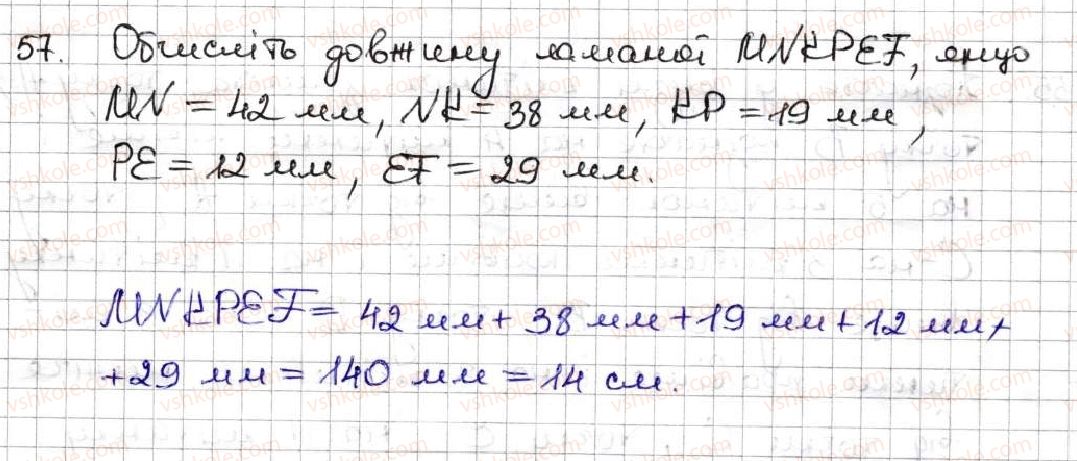 57. Обчисліть довжину ламаної MNKPEF, якщо
MN = 42 мм, NK = 38 мм, KP = 19 мм,
PE = 12 мм, EF = 29 мм.
MNKPEF = 42 мм + 38 мм + 19 мм + 12 мм +
+ 29 мм = 140 мм = 14 см.